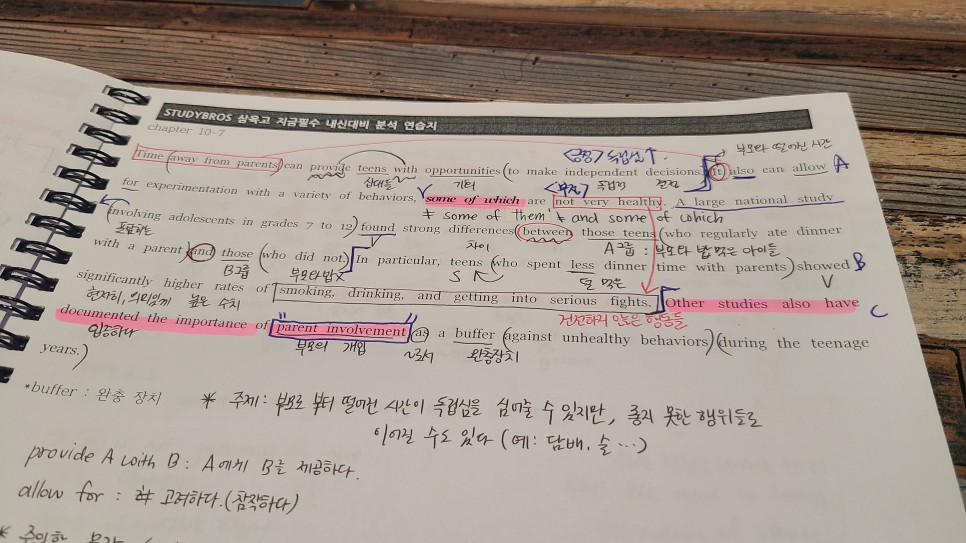 STUDYBROS 삼육고 지금필수 내신대비 분석 연습지
chapter 10-7
부모와 떨어진 시간
<긍정> 독립심 ↑.
Time (away from parents) can provide teens with opportunities (to make independent decisions. It also can allow A
십대들 기회 <부정> 독립적 결정
for experimentation with a variety of behaviors, some of which are not very healthy. A large national study
≠ some of them ≠ and some of which
(involving adolescents in grades 7 to 12) found strong differences (between those teens (who regularly ate dinner
차이 A그룹 : 부모와 밥 먹은 아이들
with a parent) and those (who did not). In particular, teens (who spent less dinner time with parents) showed B
B그룹 부모와 밥 X S 덜 먹은 V
significantly higher rates of smoking, drinking, and getting into serious fights. Other studies also have
현저히, 의미있게 높은 수치 건전하지 않은 행동들 C
documented the importance of "parent involvement" (as) a buffer (against unhealthy behaviors) (during the teenage
입증하다 부모의 개입 ~로서 완충장치
years.)
*buffer : 완충 장치
* 주제: 부모로 부터 떨어진 시간이 독립심을 심어줄 수 있지만, 좋지 못한 행위들로
이어질 수도 있다 (예: 담배, 술 …)
provide A with B : A에게 B를 제공하다.
allow for : 고려하다. (참작하다)
*